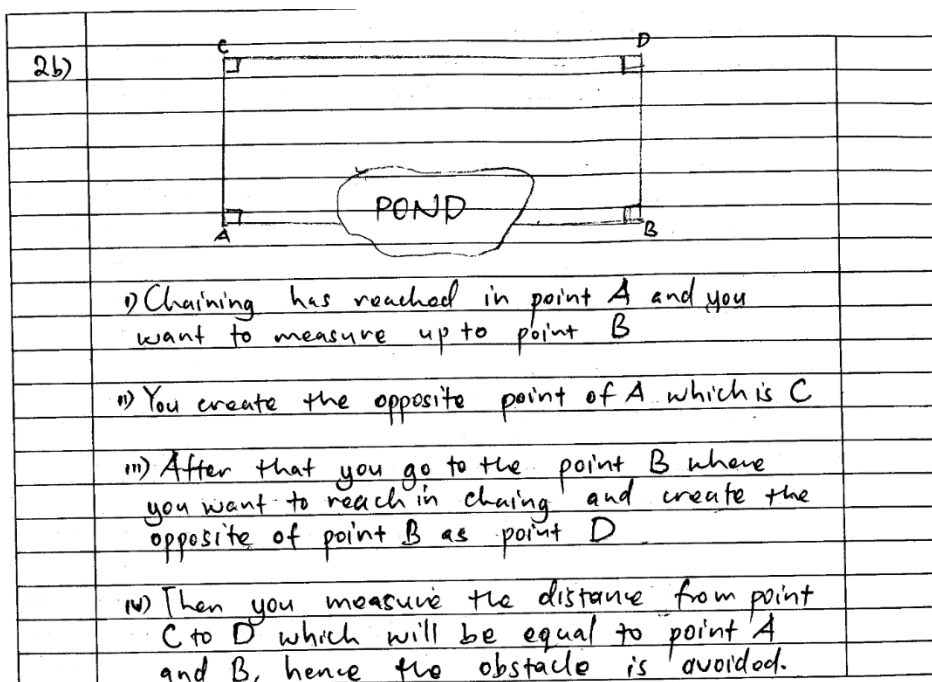 2b)
C D
POND
A B
i) Chaining has reached in point A and you
want to measure up to point B
ii) You create the opposite point of A which is C
iii) After that you go to the point B where
you want to reach in chaing and create the
opposite of point B as point D
iv) Then you measure the distance from point
C to D which will be equal to point A
and B, hence the obstacle is avoided.